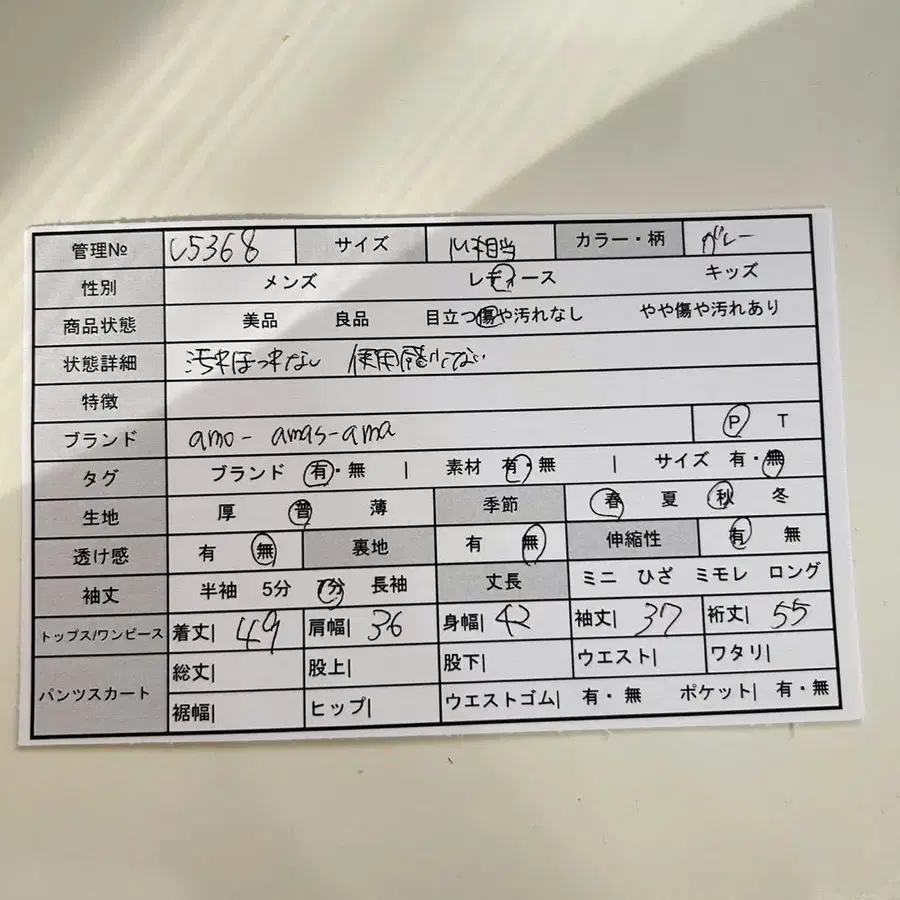 管理№ U5368 サイズ M相当 カラー・柄 グレー
性別 メンズ レディース キッズ
商品状態 美品 良品 目立つ傷や汚れなし やや傷や汚れあり
状態詳細 汚れほつれなし 使用感少しない
特徴
ブランド amo-amas-ama P T
タグ ブランド 有・無 | 素材 有・無 | サイズ 有・無
生地 厚 普 薄 季節 春 夏 秋 冬
透け感 有 無 裏地 有 無 伸縮性 有 無
袖丈 半袖 5分 7分 長袖 丈長 ミニ ひざ ミモレ ロング
トップス/ワンピース 着丈| 49 肩幅| 36 身幅| 42 袖丈| 37 裄丈| 55
パンツスカート 総丈| 股上| 股下| ウエスト| ワタリ|
裾幅| ヒップ| ウエストゴム| 有・無 ポケット| 有・無